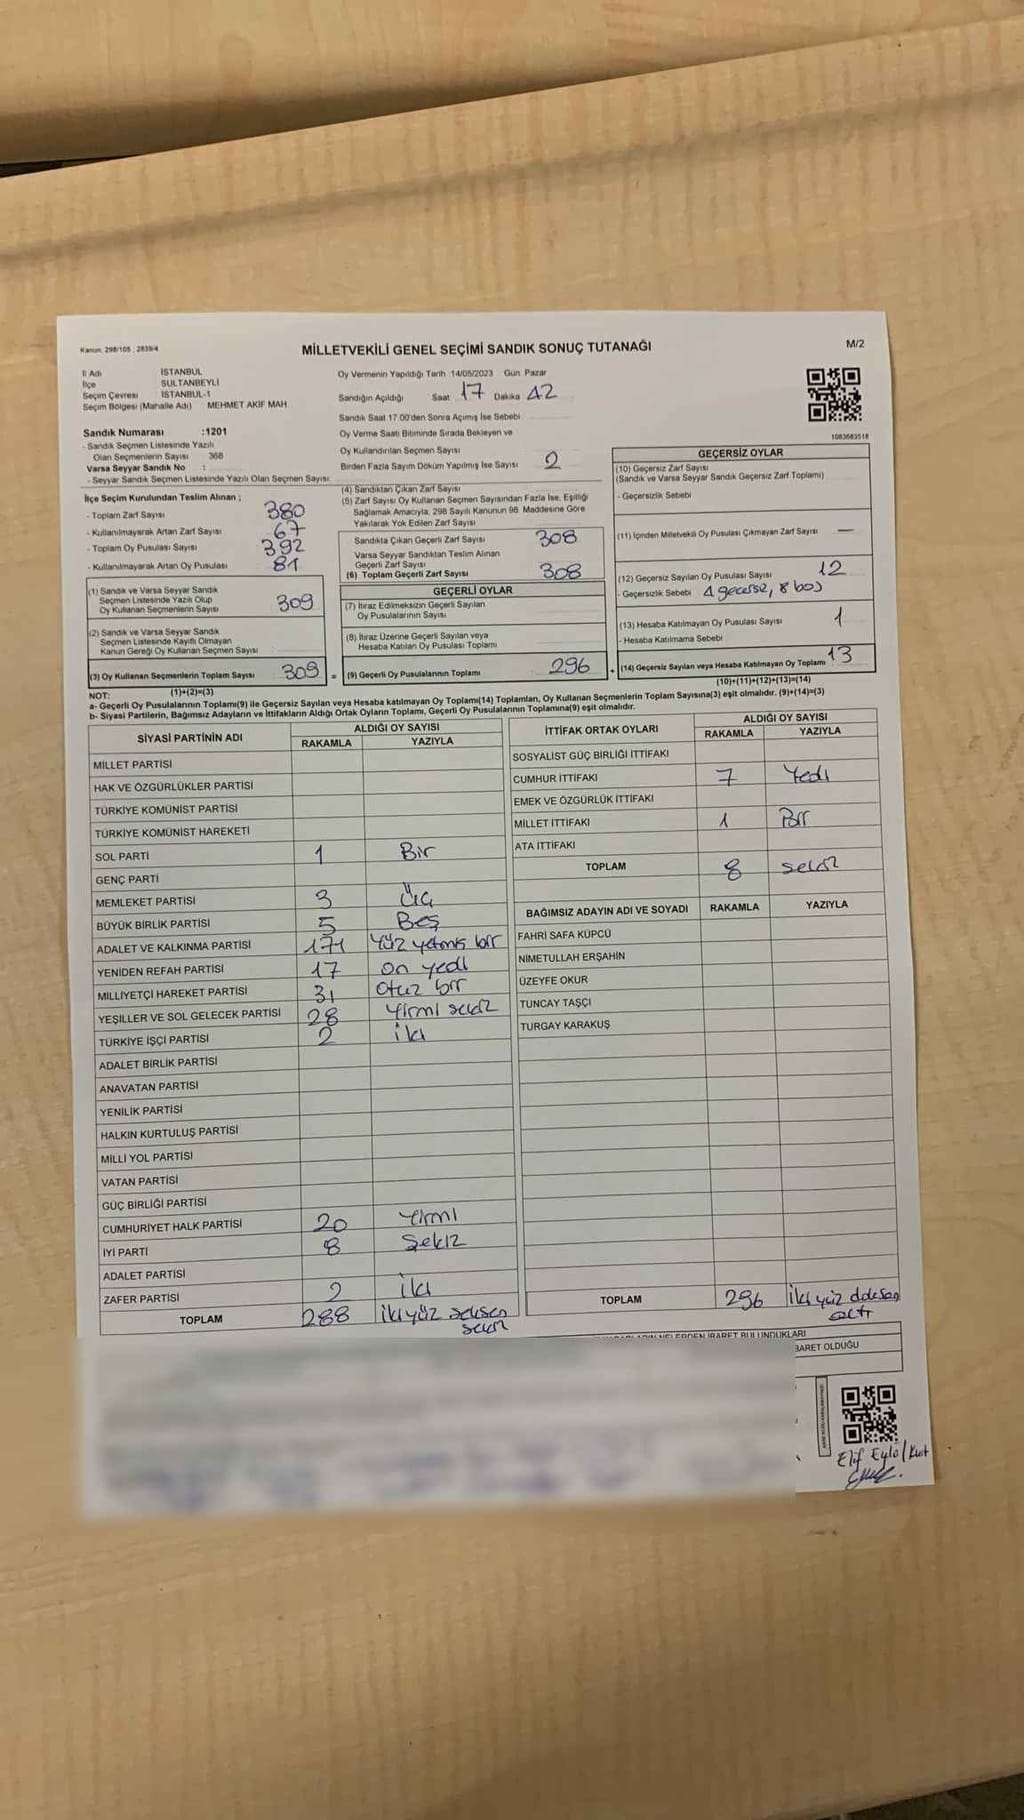 Kanun: 298/105 , 2839/4
MİLLETVEKİLİ GENEL SEÇİMİ SANDIK SONUÇ TUTANAĞI
M/2
İl Adı İSTANBUL
İlçe SULTANBEYLİ
Seçim Çevresi İSTANBUL-1
Seçim Bölgesi (Mahalle Adı) MEHMET AKİF MAH
Sandık Numarası :1201
- Sandık Seçmen Listesinde Yazılı
Olan Seçmenlerin Sayısı 368
Varsa Seyyar Sandık No :
- Seyyar Sandık Seçmen Listesinde Yazılı Olan Seçmen Sayısı:
Oy Vermenin Yapıldığı Tarih 14/05/2023 Gün Pazar
Sandığın Açıldığı Saat 17 Dakika 42
Sandık Saat 17.00'den Sonra Açımış İse Sebebi
Oy Verme Saati Bitiminde Sırada Bekleyen ve
Oy Kullandırılan Seçmen Sayısı
Birden Fazla Sayım Döküm Yapılmış İse Sayısı 2
1083683518
İlçe Seçim Kurulundan Teslim Alınan ;
- Toplam Zarf Sayısı 380
- Kullanılmayarak Artan Zarf Sayısı 67
- Toplam Oy Pusulası Sayısı 392
- Kullanılmayarak Artan Oy Pusulası 81
(1) Sandık ve Varsa Seyyar Sandık
Seçmen Listesinde Yazılı Olup
Oy Kullanan Seçmenlerin Sayısı 309
(2) Sandık ve Varsa Seyyar Sandık
Seçmen Listesinde Kayıtlı Olmayan
Kanun Gereği Oy Kullanan Seçmen Sayısı
(3) Oy Kullanan Seçmenlerin Toplam Sayısı 309 =
(1)+(2)=(3)
(4) Sandıktan Çıkan Zarf Sayısı
(5) Zarf Sayısı Oy Kullanan Seçmen Sayısından Fazla İse, Eşitliği
Sağlamak Amacıyla, 298 Sayılı Kanunun 98. Maddesine Göre
Yakılarak Yok Edilen Zarf Sayısı
Sandıkta Çıkan Geçerli Zarf Sayısı 308
Varsa Seyyar Sandıktan Teslim Alınan
Geçerli Zarf Sayısı
(6) Toplam Geçerli Zarf Sayısı 308
GEÇERLİ OYLAR
(7) İtiraz Edilmeksizin Geçerli Sayılan
Oy Pusulalarının Sayısı
(8) İtiraz Üzerine Geçerli Sayılan veya
Hesaba Katılan Oy Pusulası Toplamı
(9) Geçerli Oy Pusulalarının Toplamı 296 +
GEÇERSİZ OYLAR
(10) Geçersiz Zarf Sayısı
(Sandık ve Varsa Seyyar Sandık Geçersiz Zarf Toplamı)
- Geçersizlik Sebebi
(11) İçinden Milletvekili Oy Pusulası Çıkmayan Zarf Sayısı —
(12) Geçersiz Sayılan Oy Pusulası Sayısı 12
- Geçersizlik Sebebi 4 geçersiz, 8 boş
(13) Hesaba Katılmayan Oy Pusulası Sayısı 1
- Hesaba Katılmama Sebebi
(14) Geçersiz Sayılan veya Hesaba Katılmayan Oy Toplamı 13
(10)+(11)+(12)+(13)=(14)
NOT:
a- Geçerli Oy Pusulalarının Toplamı(9) ile Geçersiz Sayılan veya Hesaba katılmayan Oy Toplamı(14) Toplamları, Oy Kullanan Seçmenlerin Toplam Sayısına(3) eşit olmalıdır. (9)+(14)=(3)
b- Siyasi Partilerin, Bağımsız Adayların ve İttifakların Aldığı Ortak Oyların Toplamı, Geçerli Oy Pusulalarının Toplamına(9) eşit olmalıdır.
SİYASİ PARTİNİN ADI ALDIĞI OY SAYISI
RAKAMLA YAZIYLA
MİLLET PARTİSİ
HAK VE ÖZGÜRLÜKLER PARTİSİ
TÜRKİYE KOMÜNİST PARTİSİ
TÜRKİYE KOMÜNİST HAREKETİ
SOL PARTİ 1 Bir
GENÇ PARTİ
MEMLEKET PARTİSİ 3 Üç
BÜYÜK BİRLİK PARTİSİ 5 Beş
ADALET VE KALKINMA PARTİSİ 171 Yüz yetmiş bir
YENİDEN REFAH PARTİSİ 17 on yedi
MİLLİYETÇİ HAREKET PARTİSİ 31 otuz bir
YEŞİLLER VE SOL GELECEK PARTİSİ 28 Yirmi sekiz
TÜRKİYE İŞÇİ PARTİSİ 2 iki
ADALET BİRLİK PARTİSİ
ANAVATAN PARTİSİ
YENİLİK PARTİSİ
HALKIN KURTULUŞ PARTİSİ
MİLLİ YOL PARTİSİ
VATAN PARTİSİ
GÜÇ BİRLİĞİ PARTİSİ
CUMHURİYET HALK PARTİSİ 20 Yirmi
İYİ PARTİ 8 Sekiz
ADALET PARTİSİ
ZAFER PARTİSİ 2 iki
TOPLAM 288 iki yüz seksen
sekiz
İTTİFAK ORTAK OYLARI ALDIĞI OY SAYISI
RAKAMLA YAZIYLA
SOSYALİST GÜÇ BİRLİĞİ İTTİFAKI
CUMHUR İTTİFAKI 7 Yedi
EMEK VE ÖZGÜRLÜK İTTİFAKI
MİLLET İTTİFAKI 1 Bir
ATA İTTİFAKI
TOPLAM 8 sekiz
BAĞIMSIZ ADAYIN ADI VE SOYADI RAKAMLA YAZIYLA
FAHRİ SAFA KÜPCÜ
NİMETULLAH ERŞAHİN
ÜZEYFE OKUR
TUNCAY TAŞÇI
TURGAY KARAKUŞ
TOPLAM 296 iki yüz doksan
altı
NELERDEN İBARET BULUNDUKLARI
BARET OLDUĞU
Elif Eylül Kurt